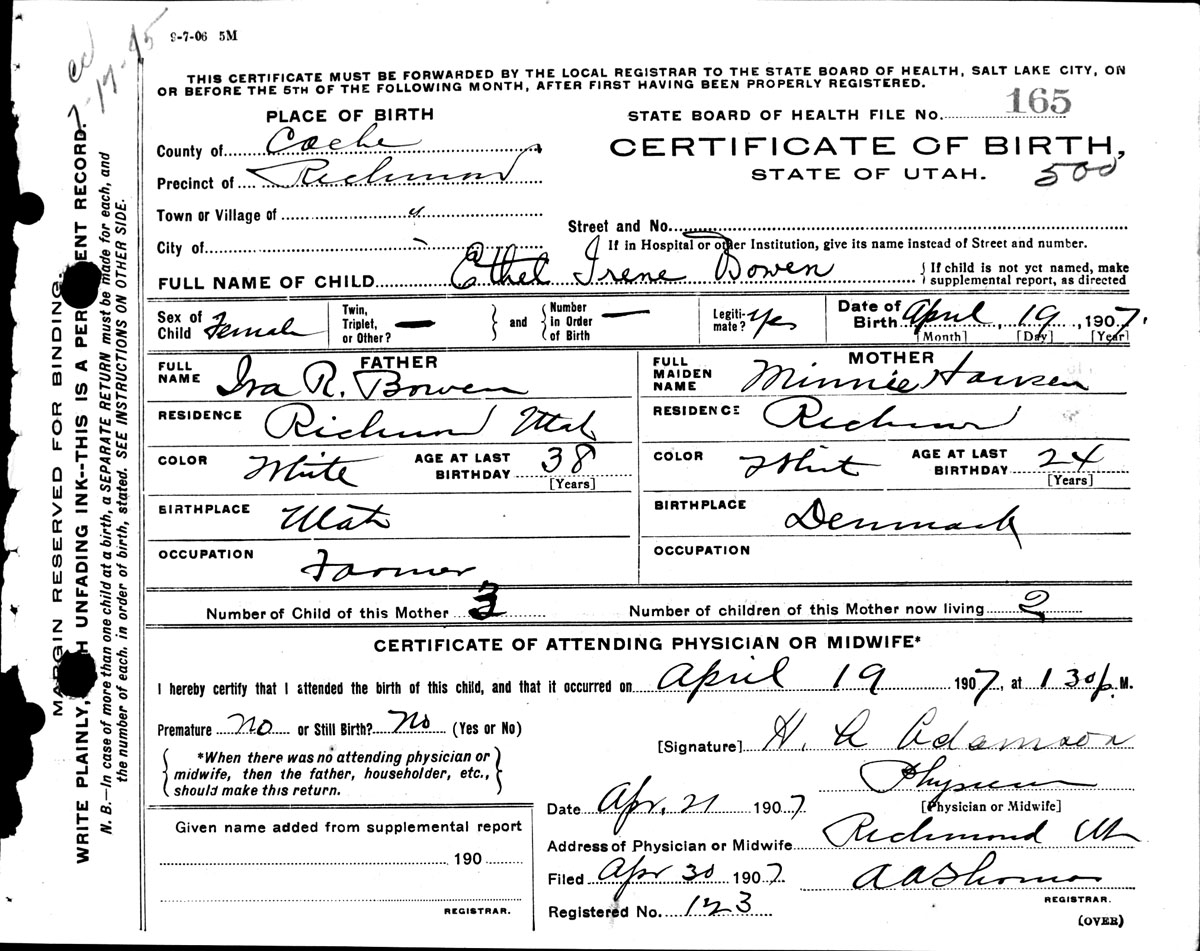 9-7-06 5M
THIS CERTIFICATE MUST BE FORWARDED BY THE LOCAL REGISTRAR TO THE STATE BOARD OF HEALTH, SALT LAKE CITY, ON
OR BEFORE THE 5TH OF THE FOLLOWING MONTH, AFTER FIRST HAVING BEEN PROPERLY REGISTERED.
PLACE OF BIRTH
STATE BOARD OF HEALTH FILE No. 165
County of Cache
CERTIFICATE OF BIRTH,
Precinct of Richmond
STATE OF UTAH.
500
Town or Village of "
Street and No.
City of
If in Hospital or other Institution, give its name instead of Street and number.
FULL NAME OF CHILD Ethel Irene Bowen
{ If child is not yet named, make
supplemental report, as directed
Sex of Child Female
Twin, Triplet, or Other? —
and
Number in Order of Birth —
Legiti-mate? Yes
Date of Birth April 19, 1907.
[Month] [Day] [Year]
FATHER
FULL NAME Ira R. Bowen
RESIDENCE Richmond Utah
COLOR White
AGE AT LAST BIRTHDAY 38
[Years]
BIRTHPLACE Utah
OCCUPATION Farmer
MOTHER
FULL MAIDEN NAME Minnie Hansen
RESIDENCE Richmond
COLOR Whit
AGE AT LAST BIRTHDAY 24
[Years]
BIRTHPLACE Denmark
OCCUPATION
Number of Child of this Mother 3
Number of children of this Mother now living 2
CERTIFICATE OF ATTENDING PHYSICIAN OR MIDWIFE*
I hereby certify that I attended the birth of this child, and that it occurred on April 19 1907, at 1 30 p. M.
Premature no or Still Birth? no (Yes or No)
[Signature] H. A Adamson
*When there was no attending physician or
midwife, then the father, householder, etc.,
should make this return.
Physician
[Physician or Midwife]
Date Apr. 21 1907
Given name added from supplemental report
Address of Physician or Midwife Richmond Ut
190
Filed Apr 30 1907
A A Thomas
REGISTRAR.
REGISTRAR.
Registered No. 123
(OVER)
MARGIN RESERVED FOR BINDING.
WRITE PLAINLY, UNFADING INK--THIS IS A RECORD.
N. B.—In case of more than one child at a birth, a SEPARATE RETURN must be made for each, and
the number of each, in order of birth, stated. SEE INSTRUCTIONS ON OTHER SIDE.